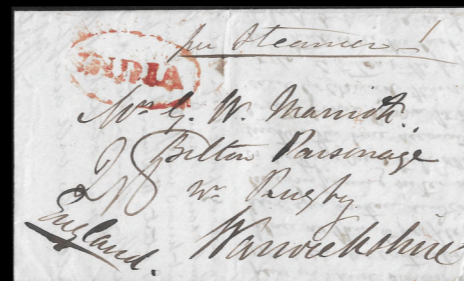 per Steamer
INDIA
Mrs G. W. Marriott.
Bilton Parsonage
Nr Rugby
Warwickshire
England.